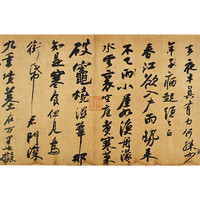 夜半真有力何殊少
年子病起頭已白
春江欲入戶雨勢來
不已雨小屋如漁舟濛
濛水雲裏空庖煮寒菜
破竈燒濕葦那
知是寒食但見烏
銜帋君門深
九重墳墓在万里也擬